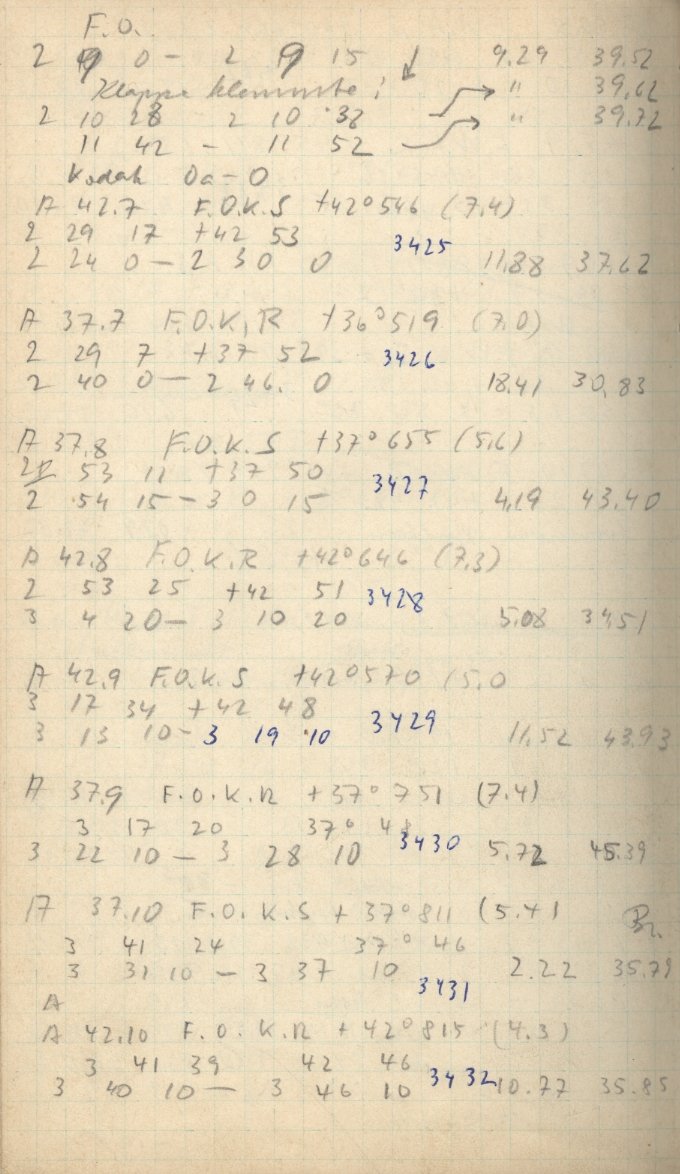 F.O.
2 9 0 — 2 9 15 9.29 39.52
Klappe klemmte! " 39.62
2 10 28 2 10 38 " 39.72
11 42 — 11 52
Kodak Oa = O
A 42.7 F.O.K.S +42°546 (7.4)
2 29 17 +42 53
3425
2 24 0 — 2 30 0 11.88 37.62
A 37.7 F.O.K.R +36°519 (7.0)
2 29 7 +37 52 3426
2 40 0 — 2 46. 0 18.41 30.83
A 37.8 F.O.K.S +37°655 (5.6)
2 53 11 +37 50
3427
2 54 15 — 3 0 15 4.19 43.40
A 42.8 F.O.K.R +42°646 (7.3)
2 53 25 +42 51 3428
3 4 20 — 3 10 20 5.08 34.51
A 42.9 F.O.K.S +42°570 (5.0
3 17 34 +42 48
3429
3 13 10 — 3 19 10 11.52 43.93
A 37.9 F.O.K.R +37°751 (7.4)
3 17 20 37° 48
3430
3 22 10 — 3 28 10 5.72 45.39
A 37.10 F.O.K.S +37°811 (5.4) Br.
3 41 24 37° 46
3 31 10 — 3 37 10 2.22 35.79
3431
A
A 42.10 F.O.K.R +42°815 (4.3)
3 41 39 42 46
3432
3 40 10 — 3 46 10 10.77 35.85